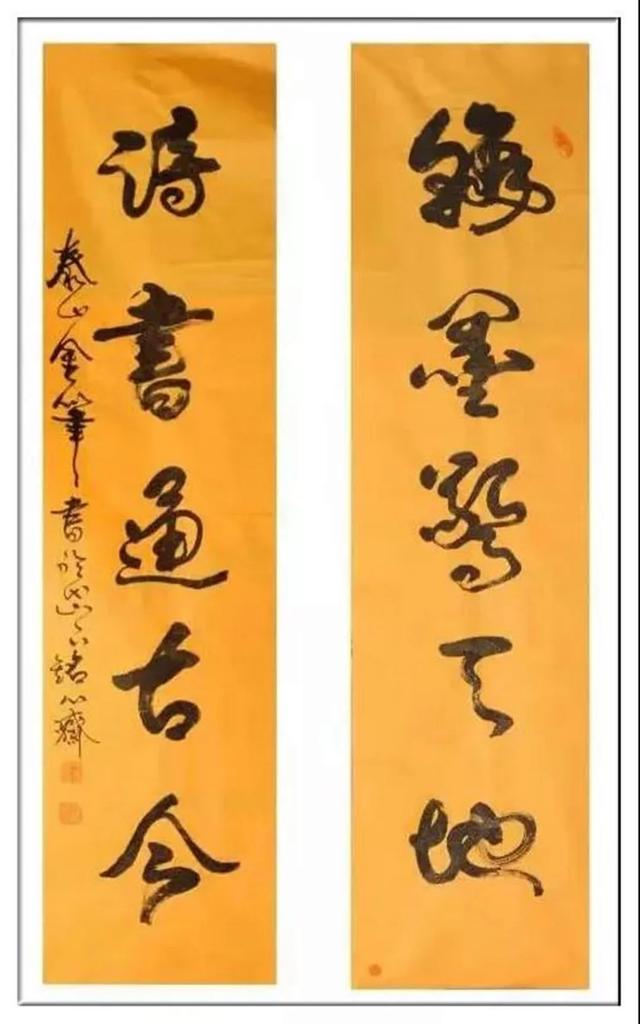 翰墨驚天地
詩書通古今
泰山金筆書於岱下銘心齋